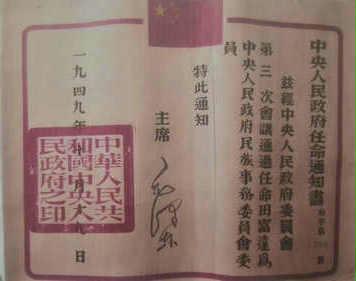 中央人民政府任命通知書
茲經中央人民政府委員會
第三次會議通過任命田富達為
中央人民政府民族事務委員會委
員
特此通知
主席
毛澤東
一九四九年十月十九日
中華人民共
和國中央人
民政府之印